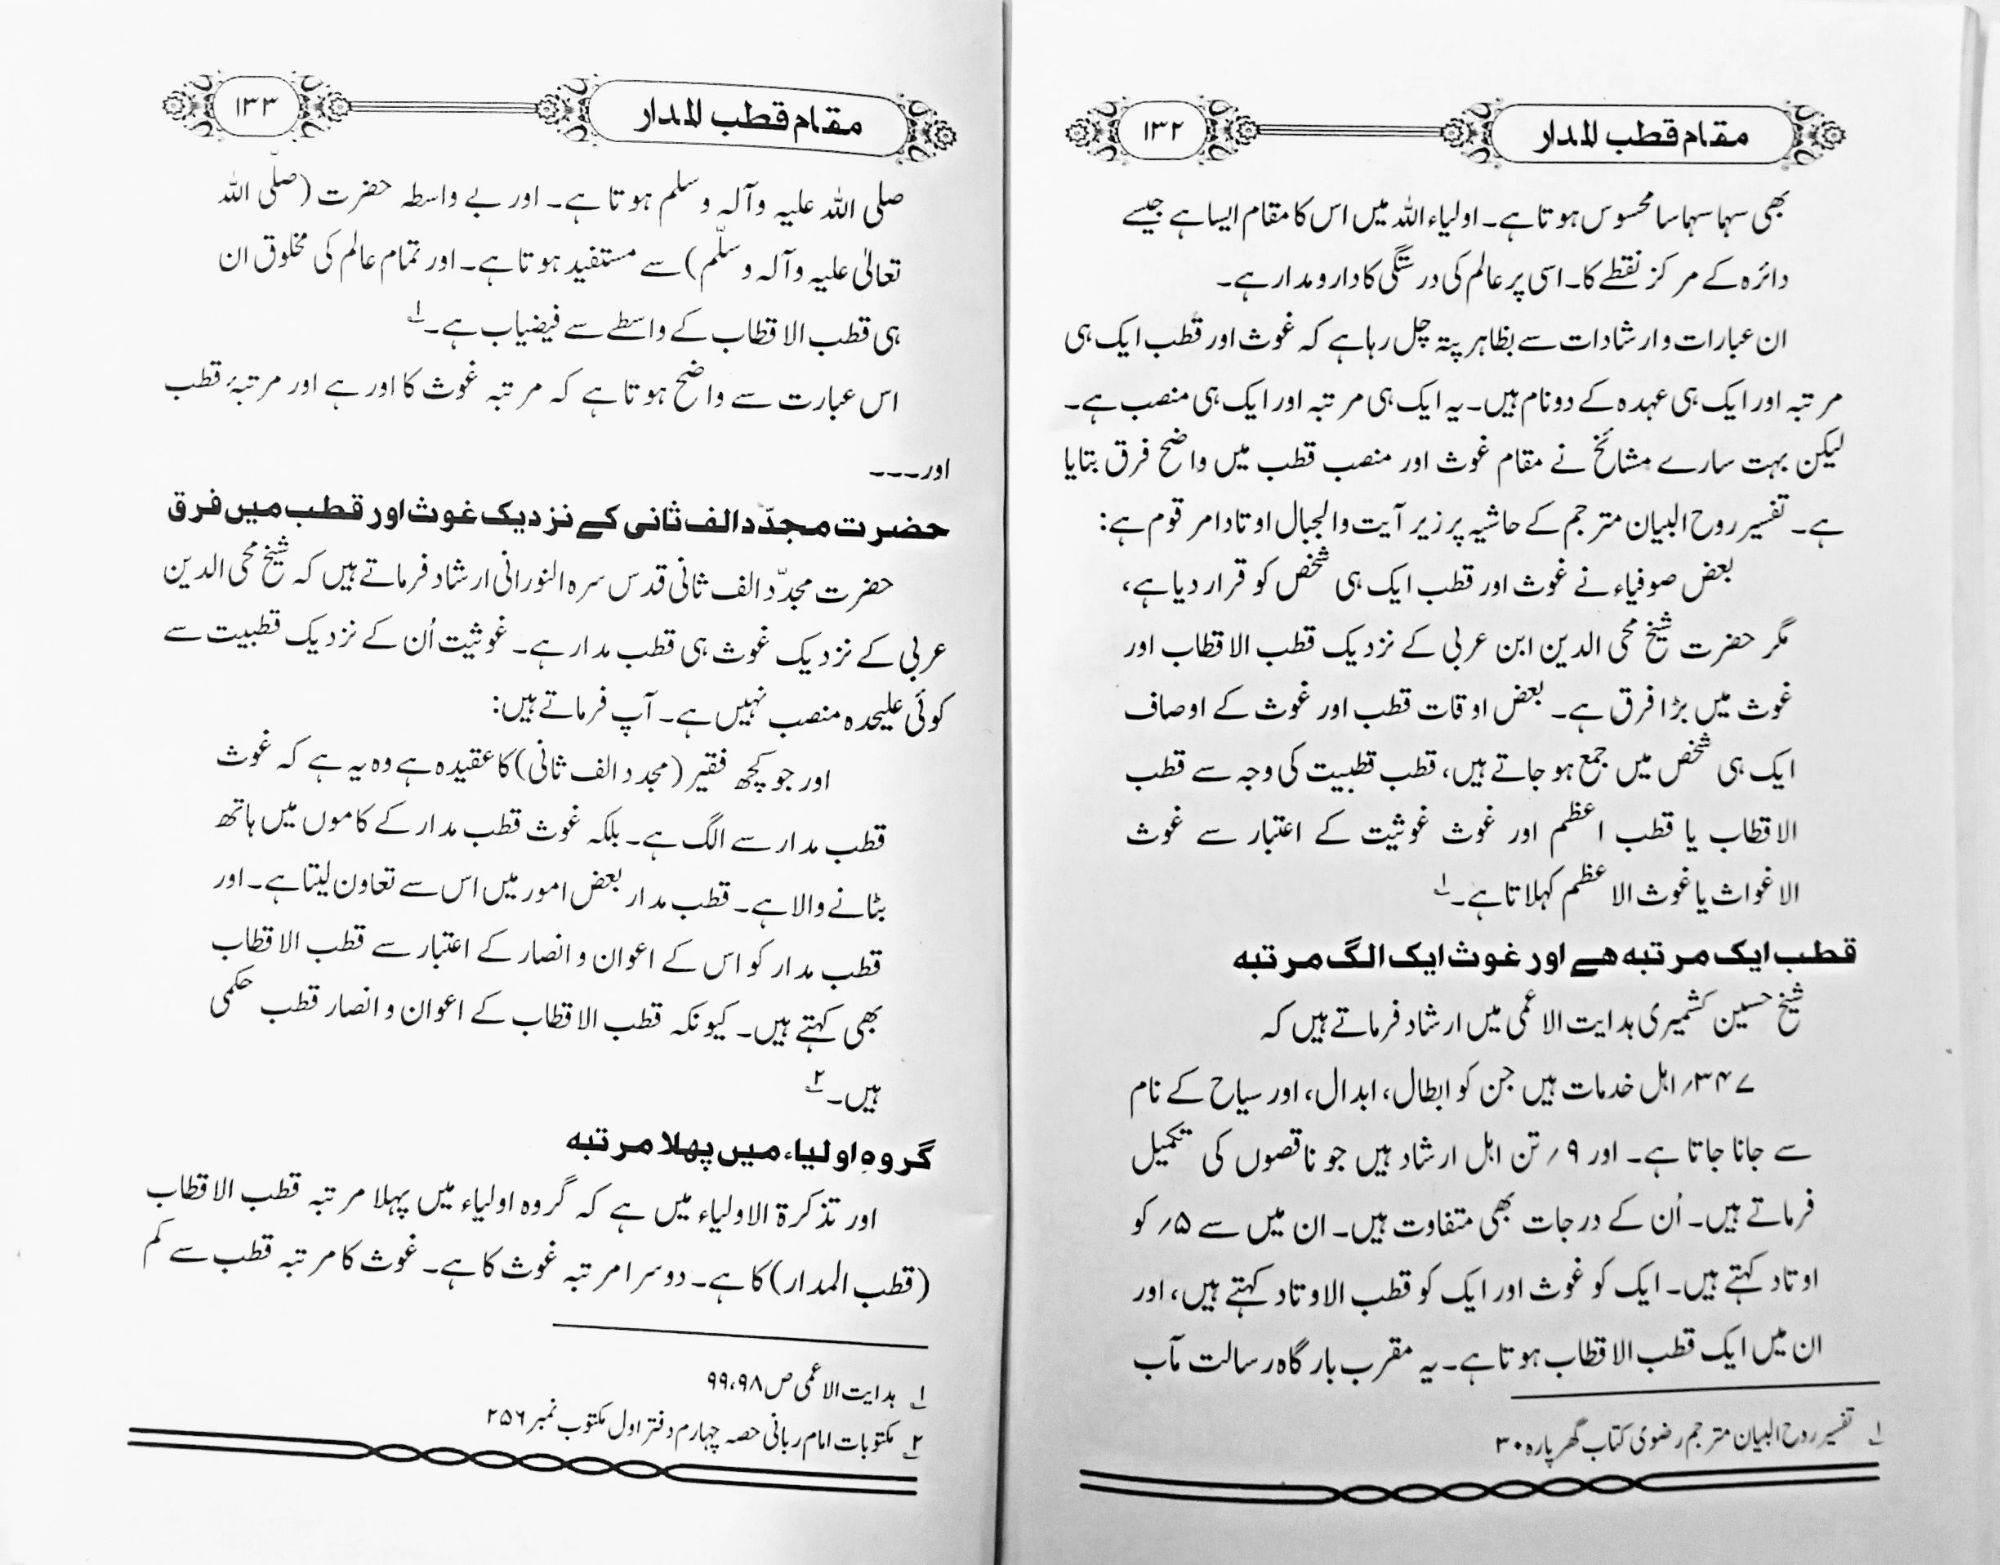 مقام قطب المدار
۱۳۲
بھی سہا سہا سا محسوس ہوتا ہے۔ اولیاء اللہ میں اس کا مقام ایسا ہے جیسے
دائرہ کے مرکز نقطے کا۔ اسی پر عالم کی درستگی کا دارومدار ہے۔
ان عبارات و ارشادات سے بظاہر پتہ چل رہا ہے کہ غوث اور قطب ایک ہی
مرتبہ اور ایک ہی عہدہ کے دو نام ہیں۔ یہ ایک ہی مرتبہ اور ایک ہی منصب ہے۔
لیکن بہت سارے مشائخ نے مقام غوث اور منصب قطب میں واضح فرق بتایا
ہے۔ تفسیر روح البیان مترجم کے حاشیہ پر زیر آیت والجبال اوتادا مرقوم ہے:
بعض صوفیاء نے غوث اور قطب ایک ہی شخص کو قرار دیا ہے،
مگر حضرت شیخ محی الدین ابن عربی کے نزدیک قطب الاقطاب اور
غوث میں بڑا فرق ہے۔ بعض اوقات قطب اور غوث کے اوصاف
ایک ہی شخص میں جمع ہو جاتے ہیں، قطب قطبیت کی وجہ سے قطب
الاقطاب یا قطب اعظم اور غوث غوثیت کے اعتبار سے غوث
الاغواث یا غوث الاعظم کہلاتا ہے۔۱
قطب ایک مرتبہ ہے اور غوث ایک الگ مرتبہ
شیخ حسین کشمیری ہدایت الاعمی میں ارشاد فرماتے ہیں کہ
۳۴۷؍ اہل خدمات ہیں جن کو ابطال، ابدال، اور سیاح کے نام
سے جانا جاتا ہے۔ اور ۹؍ تن اہل ارشاد ہیں جو ناقصوں کی تکمیل
فرماتے ہیں۔ اُن کے درجات بھی متفاوت ہیں۔ ان میں سے ۵؍ کو
اوتاد کہتے ہیں۔ ایک کو غوث اور ایک کو قطب الاوتاد کہتے ہیں، اور
ان میں ایک قطب الاقطاب ہوتا ہے۔ یہ مقرب بارگاہ رسالت مآب
۱ تفسیر روح البیان مترجم رضوی کتاب گھر پارہ ۳۰
مقام قطب المدار
۱۳۳
صلی اللہ علیہ وآلہ وسلم ہوتا ہے۔ اور بے واسطہ حضرت (صلّی اللہ
تعالیٰ علیہ وآلہ وسلّم) سے مستفید ہوتا ہے۔ اور تمام عالم کی مخلوق ان
ہی قطب الاقطاب کے واسطے سے فیضیاب ہے۔۱
اس عبارت سے واضح ہوتا ہے کہ مرتبہ غوث کا اور ہے اور مرتبۂ قطب
اور۔۔۔
حضرت مجدّد الف ثانی کے نزدیک غوث اور قطب میں فرق
حضرت مجدّد الف ثانی قدس سرہ النورانی ارشاد فرماتے ہیں کہ شیخ محی الدین
عربی کے نزدیک غوث ہی قطب مدار ہے۔ غوثیت اُن کے نزدیک قطبیت سے
کوئی علیحدہ منصب نہیں ہے۔ آپ فرماتے ہیں:
اور جو کچھ فقیر (مجدد الف ثانی) کا عقیدہ ہے وہ یہ ہے کہ غوث
قطب مدار سے الگ ہے۔ بلکہ غوث قطب مدار کے کاموں میں ہاتھ
بٹانے والا ہے۔ قطب مدار بعض امور میں اس سے تعاون لیتا ہے۔ اور
قطب مدار کو اس کے اعوان و انصار کے اعتبار سے قطب الاقطاب
بھی کہتے ہیں۔ کیونکہ قطب الاقطاب کے اعوان و انصار قطب حکمی
ہیں۔۲
گروہِ اولیاء میں پہلا مرتبہ
اور تذکرۃ الاولیاء میں ہے کہ گروہ اولیاء میں پہلا مرتبہ قطب الاقطاب
(قطب المدار) کا ہے۔ دوسرا مرتبہ غوث کا ہے۔ غوث کا مرتبہ قطب سے کم
۱ ہدایت الاعمی ص ۹۸،۹۹
۲ مکتوبات امام ربانی حصہ چہارم دفتر اول مکتوب نمبر ۲۵۶